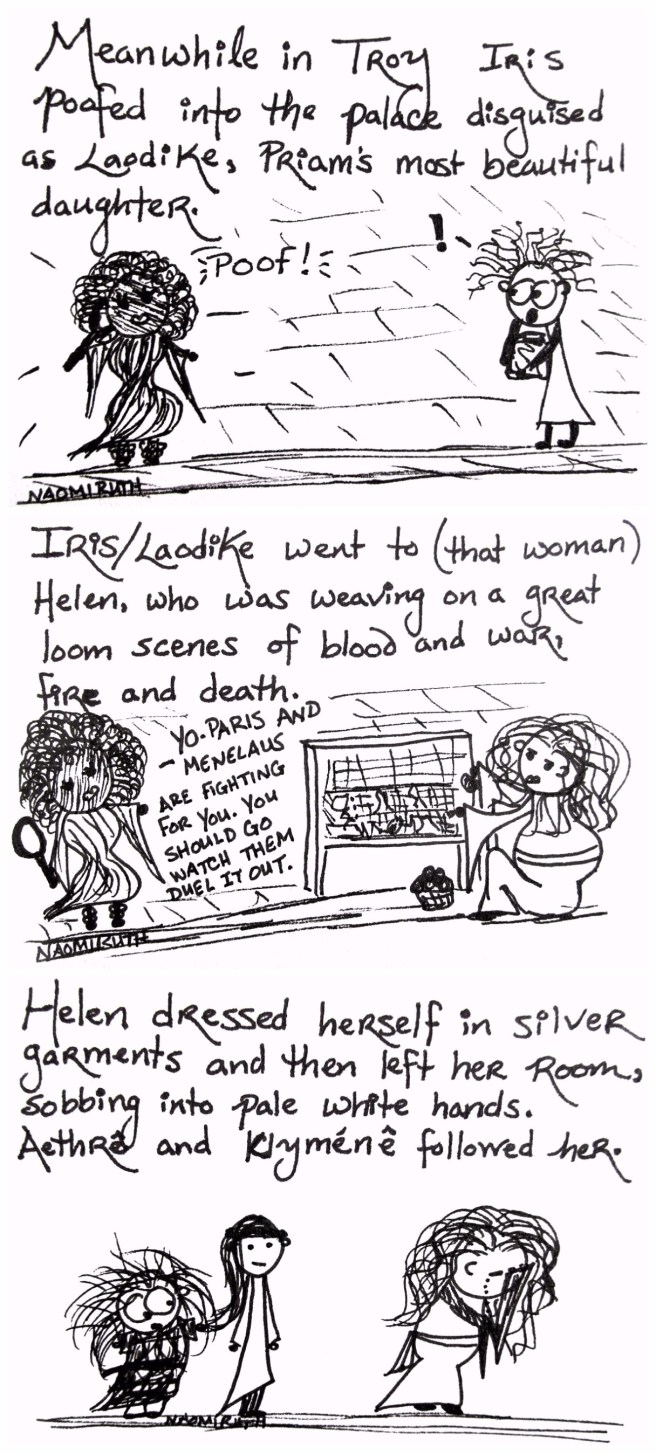 Meanwhile in Troy Iris
poofed into the palace disguised
as Laodike, Priam's most beautiful
daughter.
Poof!
!
NAOMI RUTH
Iris/Laodike went to (that woman)
Helen, who was weaving on a great
loom scenes of blood and war,
fire and death.
YO. PARIS AND
MENELAUS
ARE FIGHTING
FOR YOU. YOU
SHOULD GO
WATCH THEM
DUEL IT OUT.
NAOMI RUTH
Helen dressed herself in silver
garments and then left her room,
sobbing into pale white hands.
Aethrê and Klyménê followed her.
NAOMI RUTH